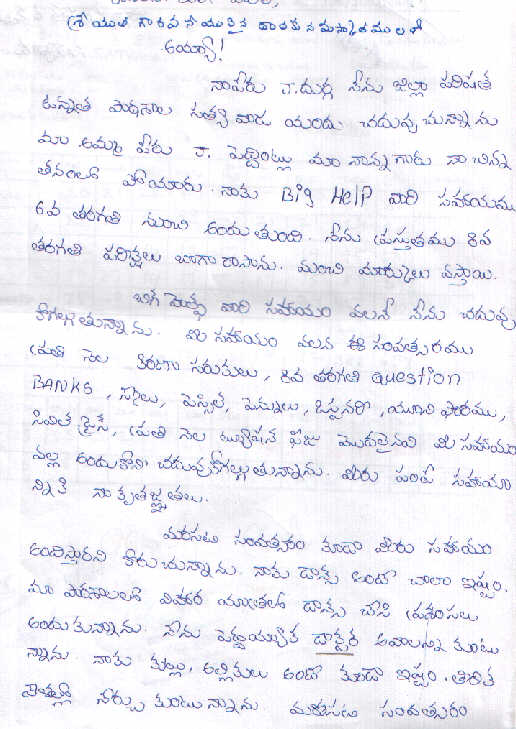 శ్రీయుత గౌరవనీయులైన దాతకు నమస్కారములతో
అయ్యా!
నాపేరు ా.దుర్గ నేను జిల్లా పరిషత్
ఉన్నత పాఠశాల యందు చదువు చున్నాను
మా అమ్మ పేరు ా. పెద్దింట్లు మా నాన్న గారు నా చిన్న
తనంలో పోయారు. నాకు Big Help వారి సహాయము
6వ తరగతి నుంచి అందుతుంది. నేను ప్రస్తుతము 8వ
తరగతి పరీక్షలు బాగా రాసాను. మంచి మార్కులు వస్తాయి.
బిగ్ హెల్ప్ వారి సహాయం వలనే నేను చదువు
కోగలుగుతున్నాను. మీ సహాయం వలన ఈ సంవత్సరము
ప్రతి నెల కిరాణా సరుకులు, 8వ తరగతి question
BANKS, పెన్సిల్, పెన్నులు, ఓప్పనరు, యూనిఫారము,
ప్రతి నెల ట్యూషన్ ఫీజు మొదలైనవి మీ సహాయం
వల్ల అందుకొని చదువుకోగల్గుతున్నాను. మీరు పంపే సహాయా
న్నికి నా కృతజ్ఞతలు.
మరుసటి సంవత్సరం కూడా మీరు సహాయం
అందిస్తారని కోరుచున్నాను. నాకు డాన్స్ అంటే చాలా ఇష్టం.
మా పాఠశాలలో డాన్స్ చేసి ప్రశంసలు
అందుకున్నాను. నేను పెద్దయ్యాక డాక్టర్ అవాలని అనుకుంటు
న్నాను. నాకు కుట్లు, అల్లికలు అంటే కూడా ఇష్టం.
నేర్చు కుంటున్నాను మరుసటి సంవత్సరం